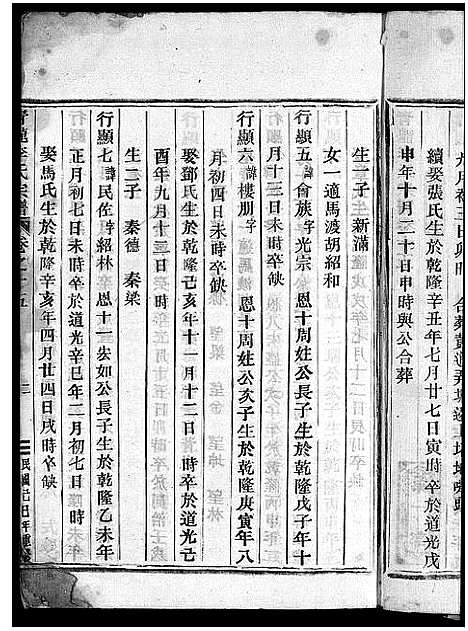 續娶張氏生於乾隆辛丑年七月廿七日寅時卒於道光戊
申年十月二十日申時與公合葬
生一子 新滿
女一適馬渡胡紹和
行顯五諱會族字光宗 恩十周姓公長子生於乾隆戊子年十
月十三日未時卒缺
行顯六諱樓朋字 恩十周姓公亥子生於乾隆庚寅年八
月初四日未時卒缺
娶鄧氏生於乾隆己亥年十一月十二日 時卒於道光己
酉年九月十三日
生二子 秦德 秦梁
行顯七諱民佐字紹林 恩十一安如公長子生於乾隆乙未年
正月初七日未時卒於道光辛巳年二月初七日 時
娶馬氏生於乾隆辛亥年四月廿四日戌時卒缺